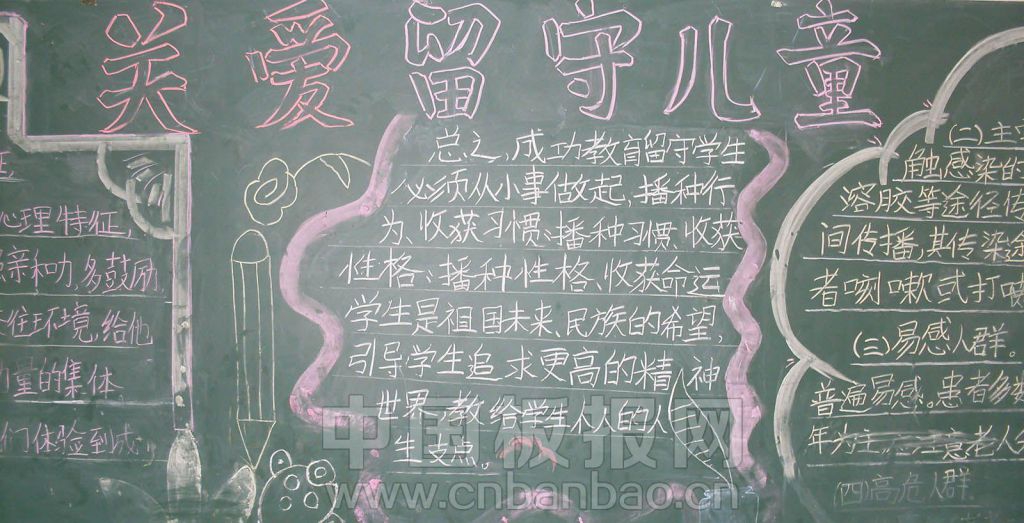 关爱留守儿童
心理特征,
亲和力,多鼓励,
住环境,给他
量的集体
们体验到成
总之,成功教育留守学生
必须从小事做起,播种行
为、收获习惯;播种习惯,收获
性格;播种性格、收获命运
学生是祖国未来、民族的希望,
引导学生追求更高的精神
世界,教给学生不人的人
生支点。
(二)主
触感染的
溶胶等途径传
间传播,其传染
者咳嗽或打喷
(三)易感人群。
普遍易感。患者多
年为主 注意老人
(四)高危人群
中国板报网
www.cnbanbao.cn